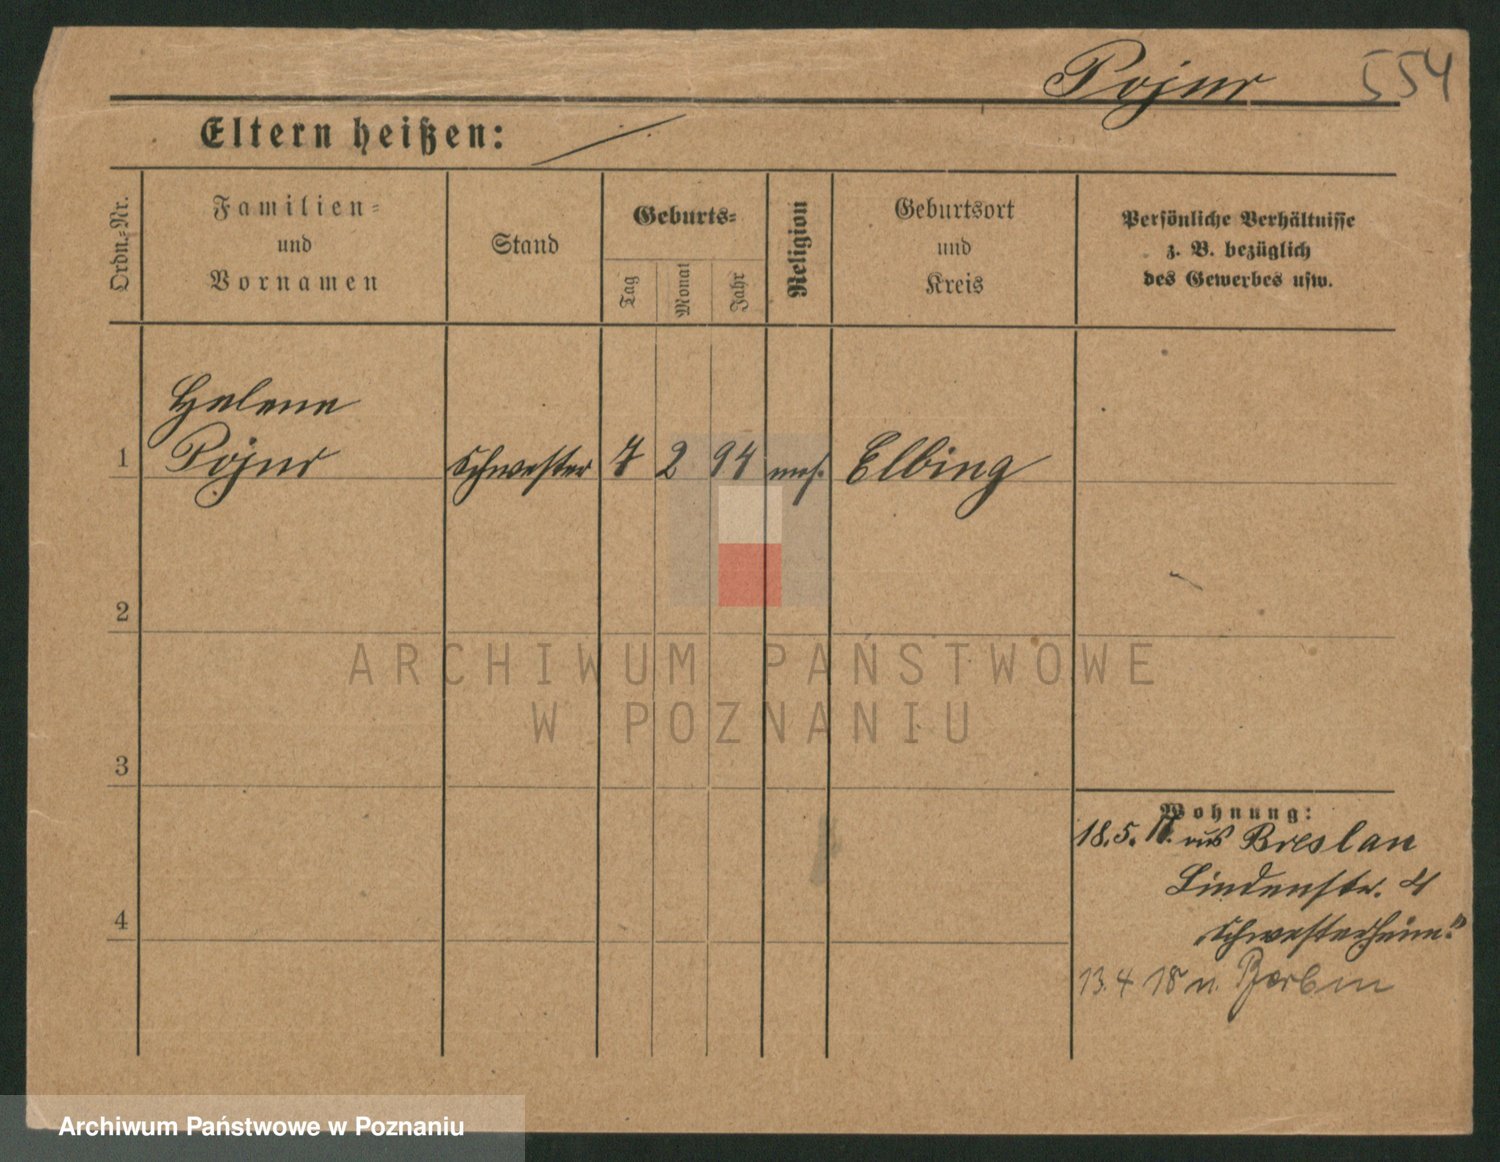 554
Eltern heißen:
Ordn.-Nr.
Familien-
und
Vornamen
Stand
Geburts-
Tag
Monat
Jahr
Religion
Geburtsort
und
Kreis
Persönliche Verhältnisse
z. B. bezüglich
des Gewerbes usw.
Helene
1
Schwester 7 2 94 Elbing
2
3
4
Wohnung:
18.5.17. aus Breslau
Lindenstr. 4
Schwesterheim
13.4 18 n.
ARCHIWUM PAŃSTWOWE
W POZNANIU
Archiwum Państwowe w Poznaniu